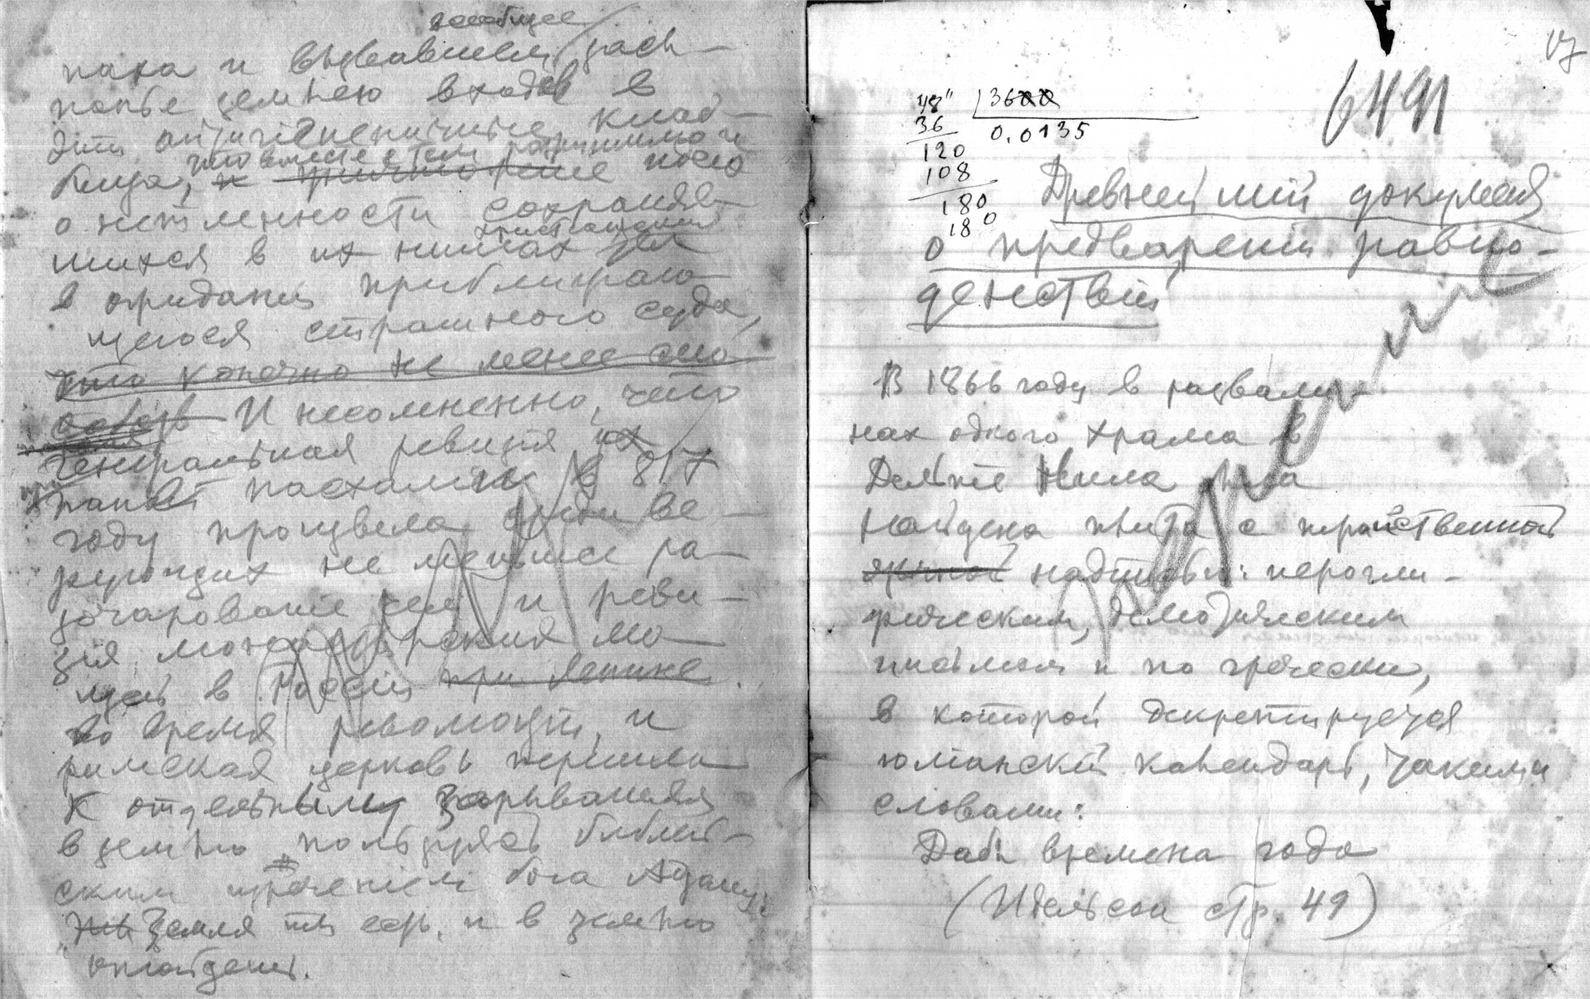 вообще
пана и
землею входов в
эти антигигиеничные клад-
бища, что вместе с тем
о нетленности сохраняв-
шихся в их нишах
в ожидании приближаю-
щегося страшного суда,
что конечно не менее
И несомненно, что
генеральная ревизия их
папой Пасхалием в 817
году произвела среди ве-
рующих не меньшее ра-
зочарованіе чем и реви-
зія мо-
щей в Россіи при Ленине
во время революціи, и
римская церковь перешла
к отдельному зарыванию
в землю, пользуясь библей-
ским изречением бога Адаму:
Земля ты есь, и в землю
отойдеши.
17
6491
48" 3600
36 0,0135
120
108
180
180
Древнейшій документ
о предвареніи равно-
денствій
В 1866 году в развали-
нах одного храма в
Дельте Нила была
найдена плита с тройственной
надписью: иерогли-
фическим, демотическим
письмом и по гречески,
в которой декретируется
юліанскій календарь, такими
словами:
Дабы времена года
(Идельсон стр. 49)